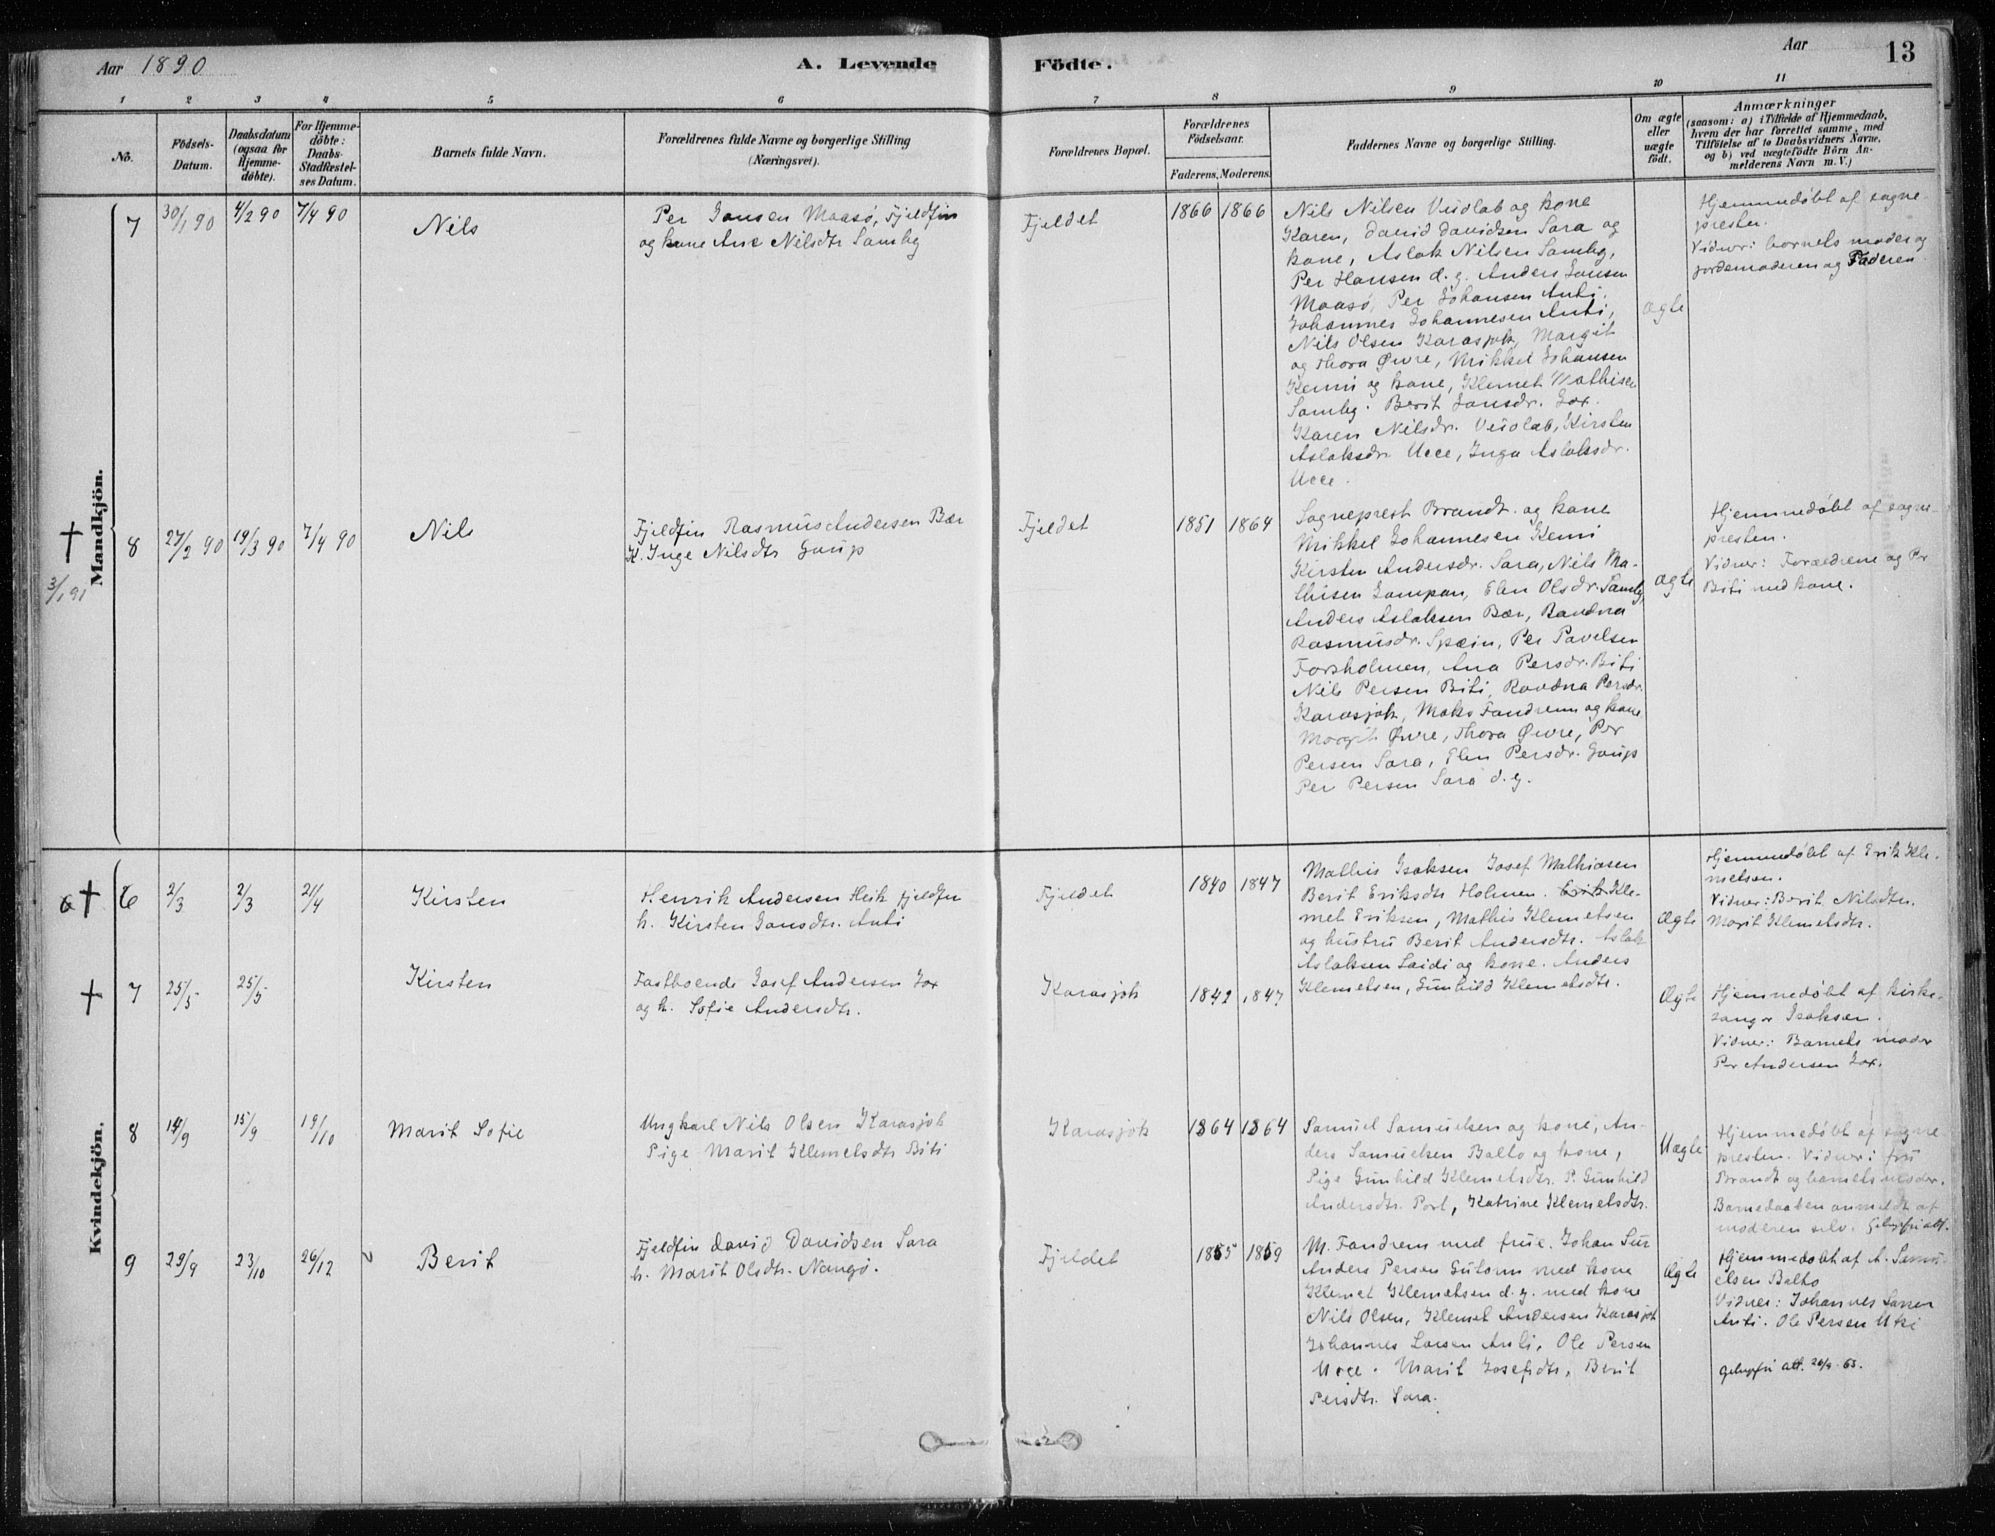 Aar 1890
A. Levende
Födte.
Aar
13
1
2
3
4
5
6
7
8
9
10
11
No.
Födsels-
Datum.
Daabsdatum
(ogsaa for
Hjemme-
döbte).
For Hjemme-
döbte:
Daabs-
Stadfæstel-
ses Datum.
Barnets fulde Navn.
Forældrenes fulde Navne og borgerlige Stilling
(Næringsvei).
Forældrenes Bopæl.
Forældrenes
Födselsaar.
Faderens. Moderens.
Faddernes Navne og borgerlige Stilling.
Om ægte
eller
uægte
födt.
Anmærkninger
(saasom: a) i Tilfælde af Hjemmedaab,
hvem der har forrettet samme, med
Tilföielse af to Daabsvidners Navne,
og b) ved uægtefödte Börn An-
melderens Navn m.V.)
Mandkjön.
7
30/1 90
4/2 90
7/4 90
Nils
Per Jonsen Maasø, Fjeldfin
og kone Ane Nilsdtr Somby
Fjeldet
1866
1866
Nils Nilsen Veidlab og kone
Karen, David Davidsen Sara og
kone, Aslak Nilsen Somby,
Per Hansen d. y. Anders Jonsen
Maasø, Per Johansen Anti,
Johannes Johannesen Anti,
Nils Olsen Karasjok, Margit
og Thora Øvre, Mikkel Johansen
Kemi og kone, Klemet Mathisen
Somby. Berit Jonsdr. Jox.
Karen Nilsdr. Veidlab, Kirsten
Aslaksdr. Ucce, Inga Aslaksdr.
Ucce.
ægte
Hjemmedøbt af sogne-
presten.
Vidner: barnets moder og
jordemoderen og Faderen
†
3/1 91
8
27/2 90
19/3 90
7/4 90
Nils
Fjeldfin Rasmus Andersen Bær
K. Inge Nilsdtr Gaup
Fjeldet
1851
1864
Sogneprest Brandt og kone
Mikkel Johannesen Kemi
Kirsten Andersdr. Sara, Nils Ma-
thisen Jompan, Elen Olsdr. Somby,
Anders Aslaksen Bær, Ravdna
Rasmusdr. Spein, Per Pavelsen
Forsholmen, Ana Persdr. Biti
Nils Persen Biti, Ravdna Persdr.
Karasjok, Maks Fandrem og kone
Margit Øvre, Thora Øvre, Per
Persen Sara, Elen Persdr. Gaup
Per Persen Sara d. y.
ægte
Hjemmedøbt af sogne-
presten.
Vidner: Forældrene og Per
Biti med kone.
Kvindekjön.
†
6
2/3
2/3
21/4
Kirsten
Henrik Andersen Heik fjeldfin
h. Kirsten Jonsdtr. Anti
Fjeldet
1840
1847
Mathis Isaksen Josef Mathiasen
Berit Eriksdtr Holmen. Erik Kle-
met Eriksen, Mathis Klemetsen
og hustru Berit Andersdtr. Aslak
Aslaksen Laidi og kone. Anders
Klemetsen, Gunhild Klemetsdtr.
Ægte
Hjemmedøbt af Erik Kle-
metsen.
Vidner: Berit Nilsdtr.
Marit Klemetsdtr.
†
7
25/5
25/5
Kirsten
Fastboende Josef Andersen Jox
og h. Sofie Andersdtr.
Karasjok
1842
1847
Ægte
Hjemmedøbt af kirke-
sanger Isaksen.
Vidner: Barnets moder
Per Andersen Jox.
8
14/9
15/9
19/10
Marit Sofie
Ungkarl Nils Olsen Karasjok
Pige Marit Klemetsdtr Biti
Karasjok
1864
1864
Samuel Samuelsen og kone, An-
ders Samuelsen Balto og kone,
Pige Gunhild Klemetsdtr. P. Gunhild
Andersdtr. Port, Katrine Klemetsdtr.
Uægte
Hjemmedøbt af sogne-
presten. Vidner: fru
Brandt og barnets moder.
Barnedaaben anmeldt af
moderen selv. Gebyrfri att.
9
29/9
23/10
26/12
Berit
Fjeldfin David Davidsen Sara
h. Marit Olsdtr. Nangø.
Fjeldet
1855
1859
M. Fandrem med frue. Johan Sur
Anders Persen Guttorm med kone
Klemet Klemetsen d. y. med kone
Nils Olsen, Klemet Andersen Karasjok
Johannes Larsen Anti, Ole Persen
Ucce. Marit Josefsdtr, Berit
Persdtr. Sara.
Ægte
Hjemmedøbt af A. Samu-
elsen Balto
Vidner: Johannes Larsen
Anti. Ole Persen Utsi
Gebyrfri att. 63.